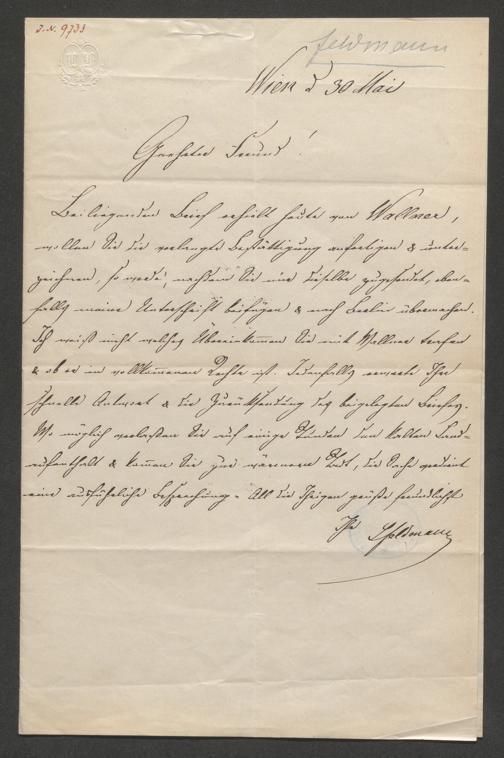 J.N. 9733
Feldmann
Wien d 30 Mai
Geehrter Freund!
Beiliegenden Brief erhielt heute von Wallner,
wollen Sie die verlangte Bestättigung anfertigen & unter-
zeichnen, so werde, nachdem Sie mir dieselbe zugesendet, eben-
falls meine Unterschrift beifügen & nach Berlin übermachen.
Ich weiß nicht welches Übereinkommen Sie mit Wallner trafen
& ob er im vollkommenen Rechte ist. Jedenfalls erwarte Ihre
schnelle Antwort & die Zurücksendung des beigelegten Briefes.
Wo möglich verlassen Sie auf einige Stunden den kalten Land-
aufenthalt & kommen Sie zur wärmeren Stadt, die Sache verdient
eine ausführliche Besprechung. All die Ihrigen grüße freundlichst
Ihr LFeldmann